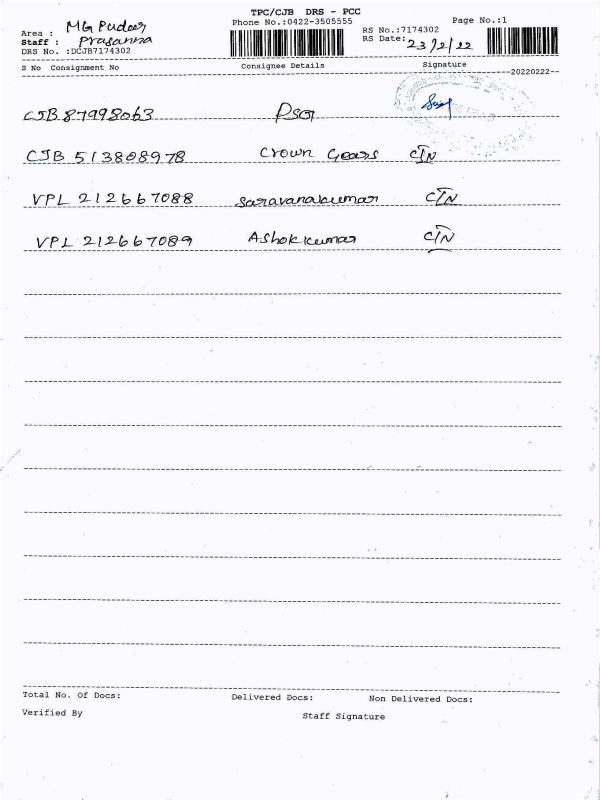 TPC/CJB DRS - PCC
Phone No.:0422-3505555
Page No.:1
Area : MG Pudur
RS No.:7174302
Staff : Prasanna
RS Date: 23/2/22
DRS No. :DCJB7174302
S No Consignment No Consignee Details Signature
--20220222--
CJB 87998063 PSG
CJB 513808978 Crown Gears CTN
VPL 212667088 Saravanakumar CTN
VPL 212667089 Ashokkumar CTN
Total No. Of Docs: Delivered Docs: Non Delivered Docs:
Verified By Staff Signature